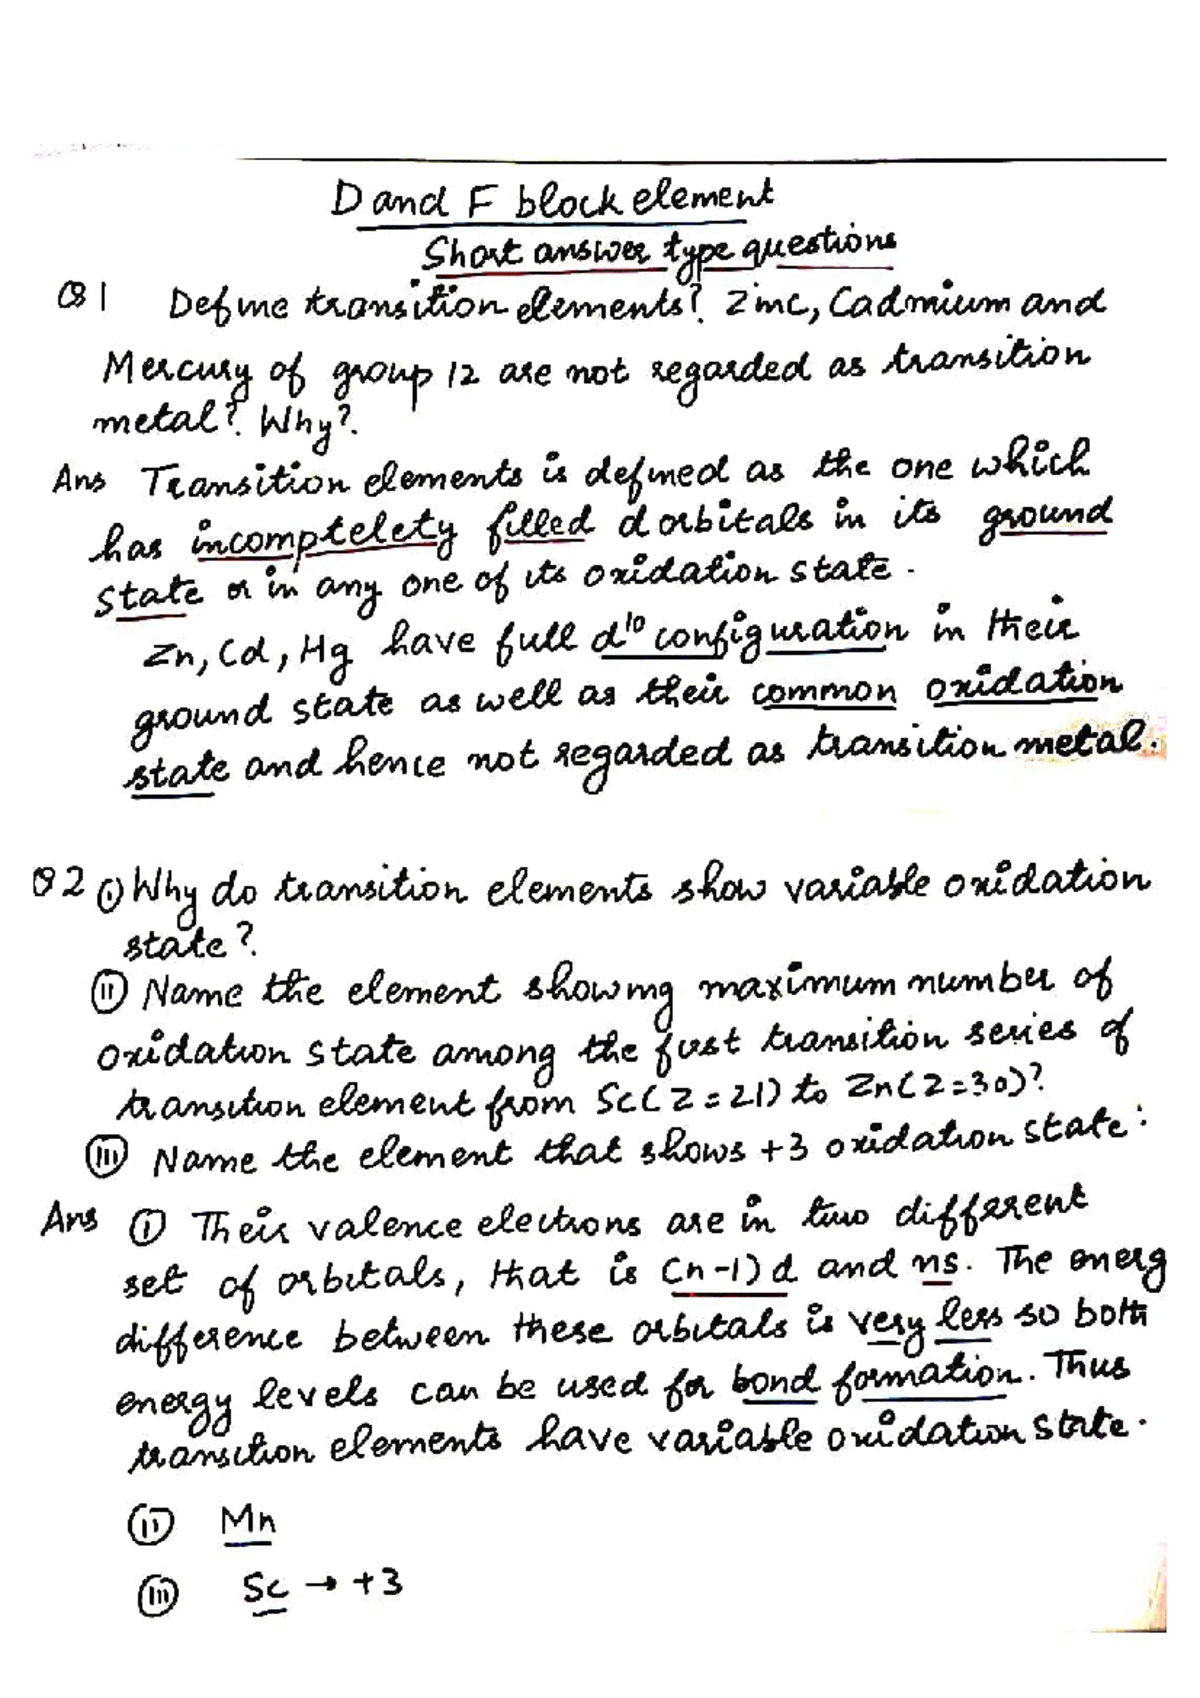 D and F block element
Short answer type questions
Q1 Define transition elements? Zinc, Cadmium and
Mercury of group 12 are not regarded as transition
metal? Why?
Ans Transition elements is defined as the one which
has incomptelety filled d orbitals in its ground
state or in any one of its oxidation state.
Zn, Cd, Hg have full d¹⁰ configuration in their
ground state as well as their common oxidation
state and hence not regarded as transition metal.
Q2 (i) Why do transition elements show variable oxidation
state?
(ii) Name the element showing maximum number of
oxidation state among the first transition series of
transition element from Sc(Z=21) to Zn(Z=30)?
(iii) Name the element that shows +3 oxidation state:
Ans (i) Their valence elections are in two different
set of orbitals, that is (n-1)d and ns. The energ
difference between these orbitals is very less so both
energy levels can be used for bond formation. Thus
transition elements have variable oxidation state.
(ii) Mn
(iii) Sc → +3